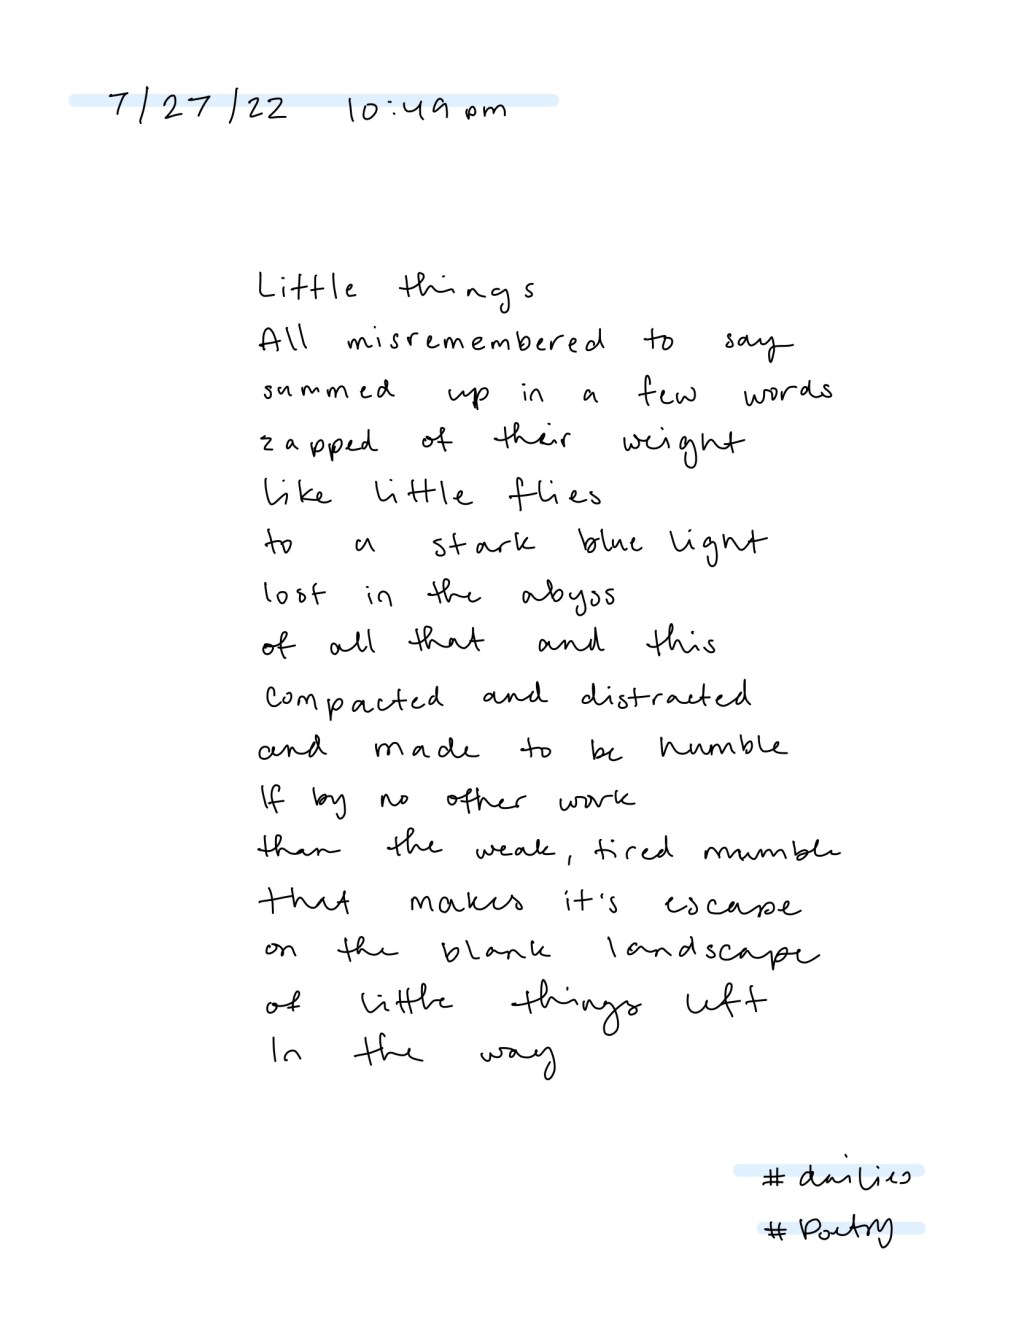 7/27/22 10:49 pm
Little things
All misremembered to say
summed up in a few words
zapped of their weight
like little flies
to a stark blue light
lost in the abyss
of all that and this
compacted and distracted
and made to be humble
If by no other work
than the weak, tired mumble
that makes it's escape
on the blank landscape
of little things left
In the way
# dailies
# Poetry